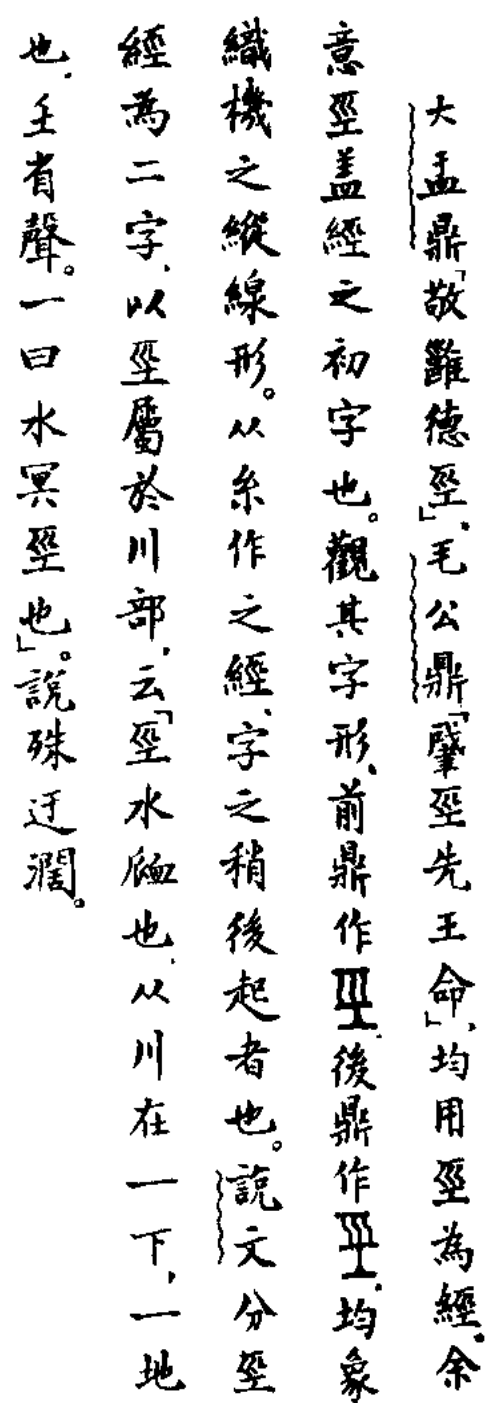 大盂鼎「敬雝德巠」、毛公鼎「肇巠先王命」、均用巠為經。余
意巠蓋經之初字也。觀其字形、前鼎作、後鼎作、均象
織機之縱線形。从糸作之經、字之稍後起者也。說文分巠
經為二字、以巠屬於川部、云「巠水𧖴也、从川在一下、一地
也、壬省聲。一曰水冥巠也」。說殊迂濶。